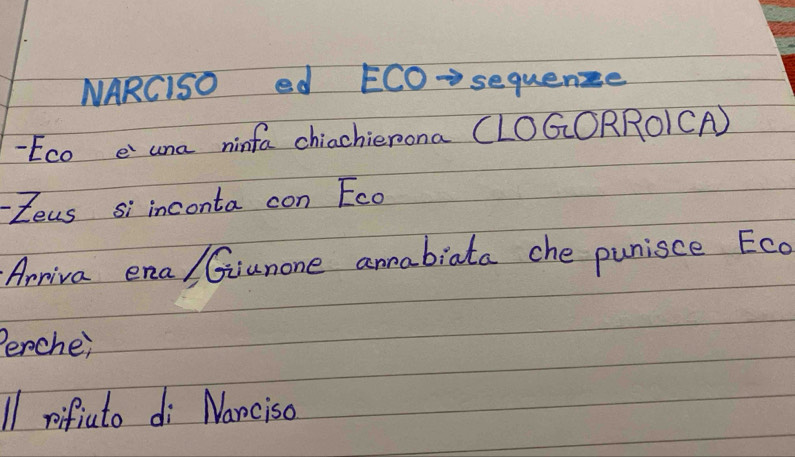 NARCISO ed ECO → sequenze
-Eco e' una ninfa chiachierona (LOGORROICA)
-Zeus si inconta con Eco
-Arriva era/Giunone arrabiata che punisce Eco
Perche',
Il rifiuto di Narciso